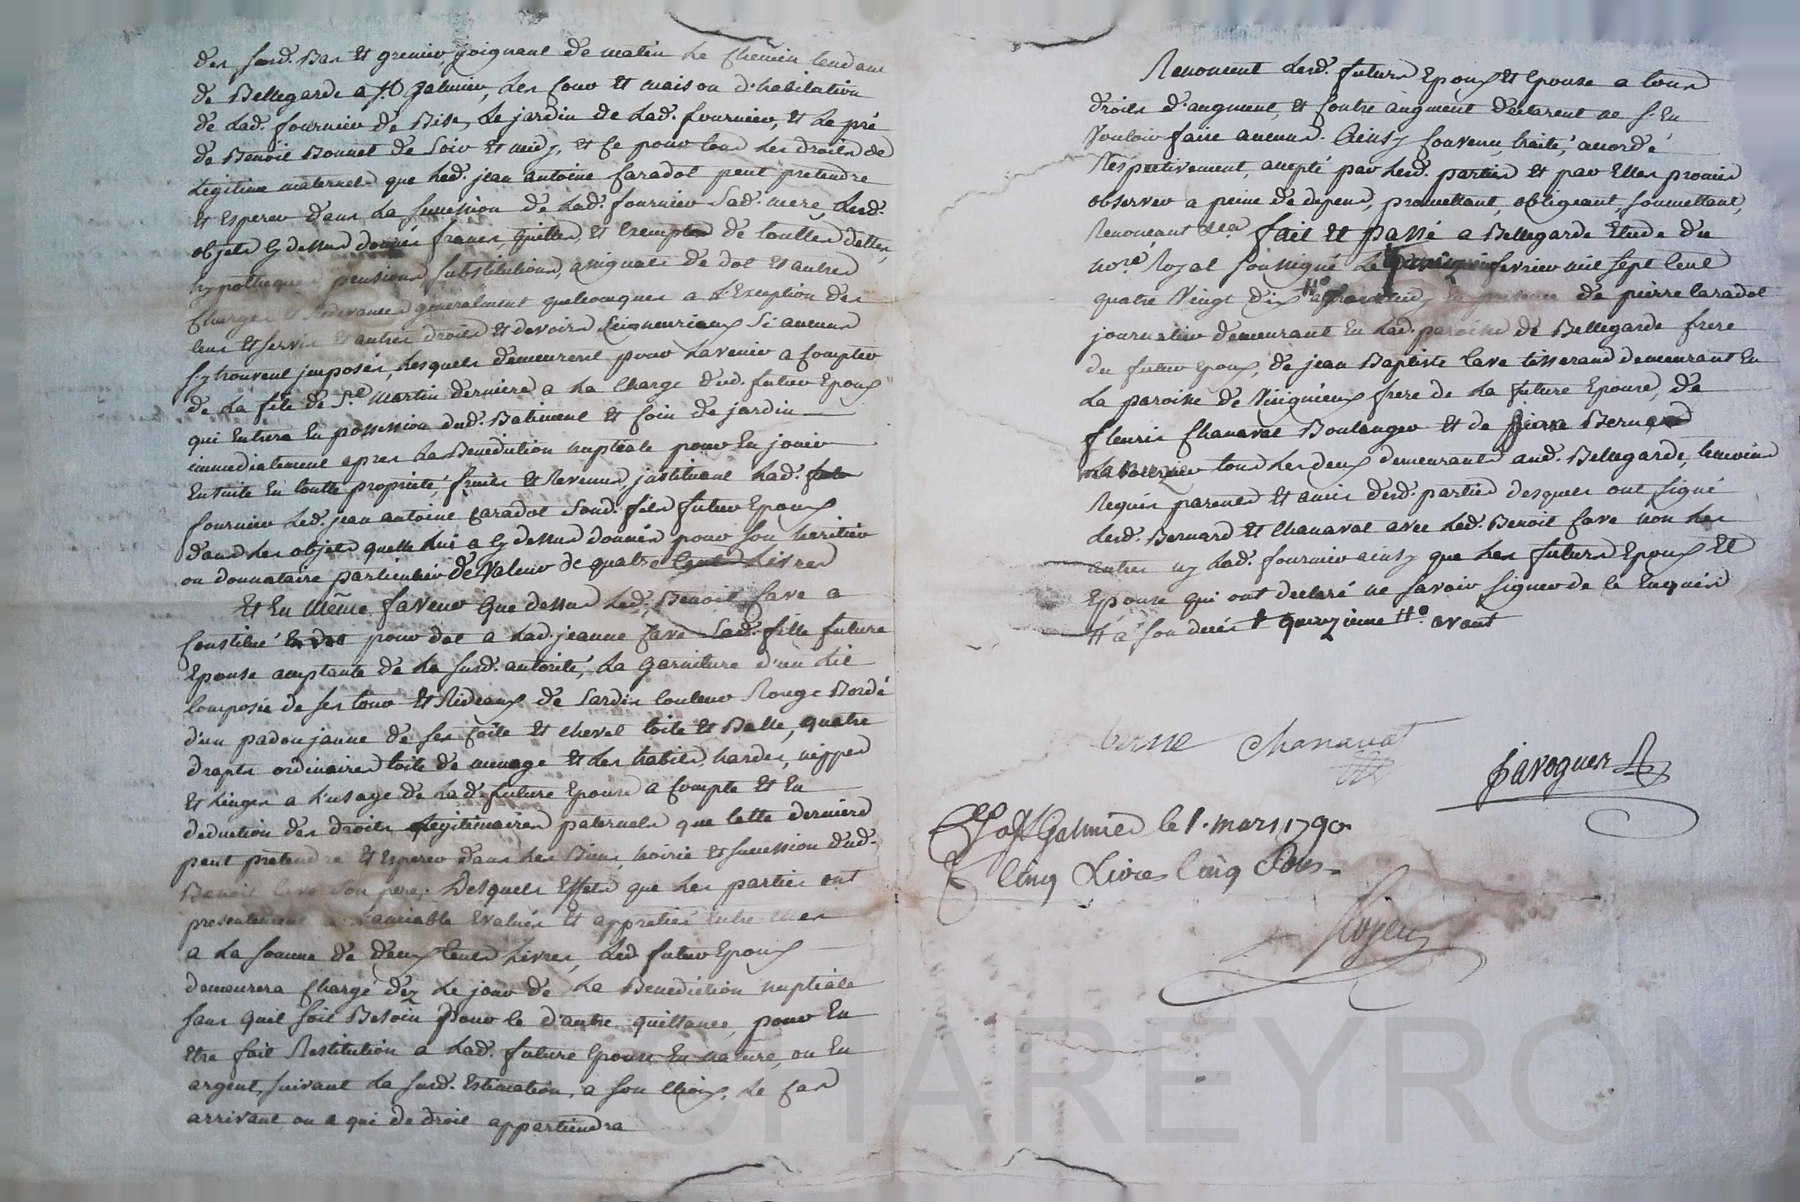 desd. Bas et grenier, joignant de matin le chemin tendant
de Bellegarde a St Galmier, les cour et maison d'habitation
de lad. fournier de Bise, le jardin de lad. fournier, et le pré
de Benoit Bonnet de soir et midy, et ce pour tous les droits de
legitime maternels que led. jean antoine Caradot peut pretendre
et Esperer dans la succession de lad. fournier sad. mere, lesd.
objets cy dessus donnés francs quittes, et Exempts de touttes dettes,
hypotheques pensions, substitutions, assignats de dot et autres
charges et Redevances generalement quelconques a l'Exception des
cens et servis et autres droits et devoirs seigneuriaux si aucuns
s'y trouvent imposés, lesquels demeurent pour l'avenir a compter
de la fête de St martin derniere a la charge dud. futur Epoux
qui Entrera En possession dud. Batiment et coin de jardin
immediatement apres la Benediction nuptiale pour En jouir
Ensuite En toutte proprieté, fruits et Revenus, instituant lad.
fournier led. jean antoine caradot sond. fils futur Epoux
dans les objets quelle lui a cy dessus donnés pour son heritier
ou donnataire particulier de Valeur de quatre Cent Livres
Et En même faveur que dessus led. Benoit fave a
Constitué pour dot a lad. jeanne fave sad. fille future
Epouse acceptante de la susd. autorité, la garniture d'un lit
composée de ses tour et Rideaux de cardis couleur Rouge Bordé
d'un padou jaune de ses coite et chevet toile et Balle, quatre
draps ordinaires toile de menage et les habits hardes, nippes
et linges a l'usage de lad. future Epouse a compte et En
deduction des droits legitimaires paternels que cette derniere
peut pretendre et Esperer dans les Biens, hoirie et succession dud.
Benoit fave son pere; desquels Effets que les parties ont
presentement a l'amiable Evalués et appretiés Entre Elles
a la somme de deux Cents Livres, led. futur Epoux
demeurera chargé dez le jour de la Benediction nuptiale
sans quil soit Besoin pour ce d'autre quittance, pour En
être fait Restitution a lad. future Epouse En nature, ou En
argent, suivant la susd. Estimation, a son choix, le cas
arrivant ou a qui de droit appartiendra
Renoncent lesd. futurs Epoux et Epouse a tous
droits d'augment, et contre augment declarent ne s'En
vouloir faire aucuns. Ainsy convenu, traité, accordé
Respectivement, accepté par lesd. parties et par Elles promis
observer a peine de depens, promettant, obligeant, soumettant,
Renonceant &ca fait et passé a Bellegarde Etude du
nore Royal soussigné le fevrier mil sept Cent
quatre Vingt dix En presence de pierre Caradot
journalier demeurant En lad. paroisse de Bellegarde frere
du futur Epoux, de jean Baptiste fave tisserand demeurant En
la paroisse de frere de la future Epouse, de
fleuris Chanavat Boulanger et de Bernard
tous les deux demeurants aud. Bellegarde, temoins
Requis parents et amis desd. parties desquels ont signé
lesd. Bernard et Chanavat avec led. Benoit fave non les
autres ny lad. fournier ainsy que les futurs Epoux et
Epouse qui ont declaré ne savoir signer de ce Enquis
a son decès quinzieme avant
Chanavat
javogues
a St Galmier le 1. mars 1790
Cinq Livres Cinq Sous
CHAREYRON